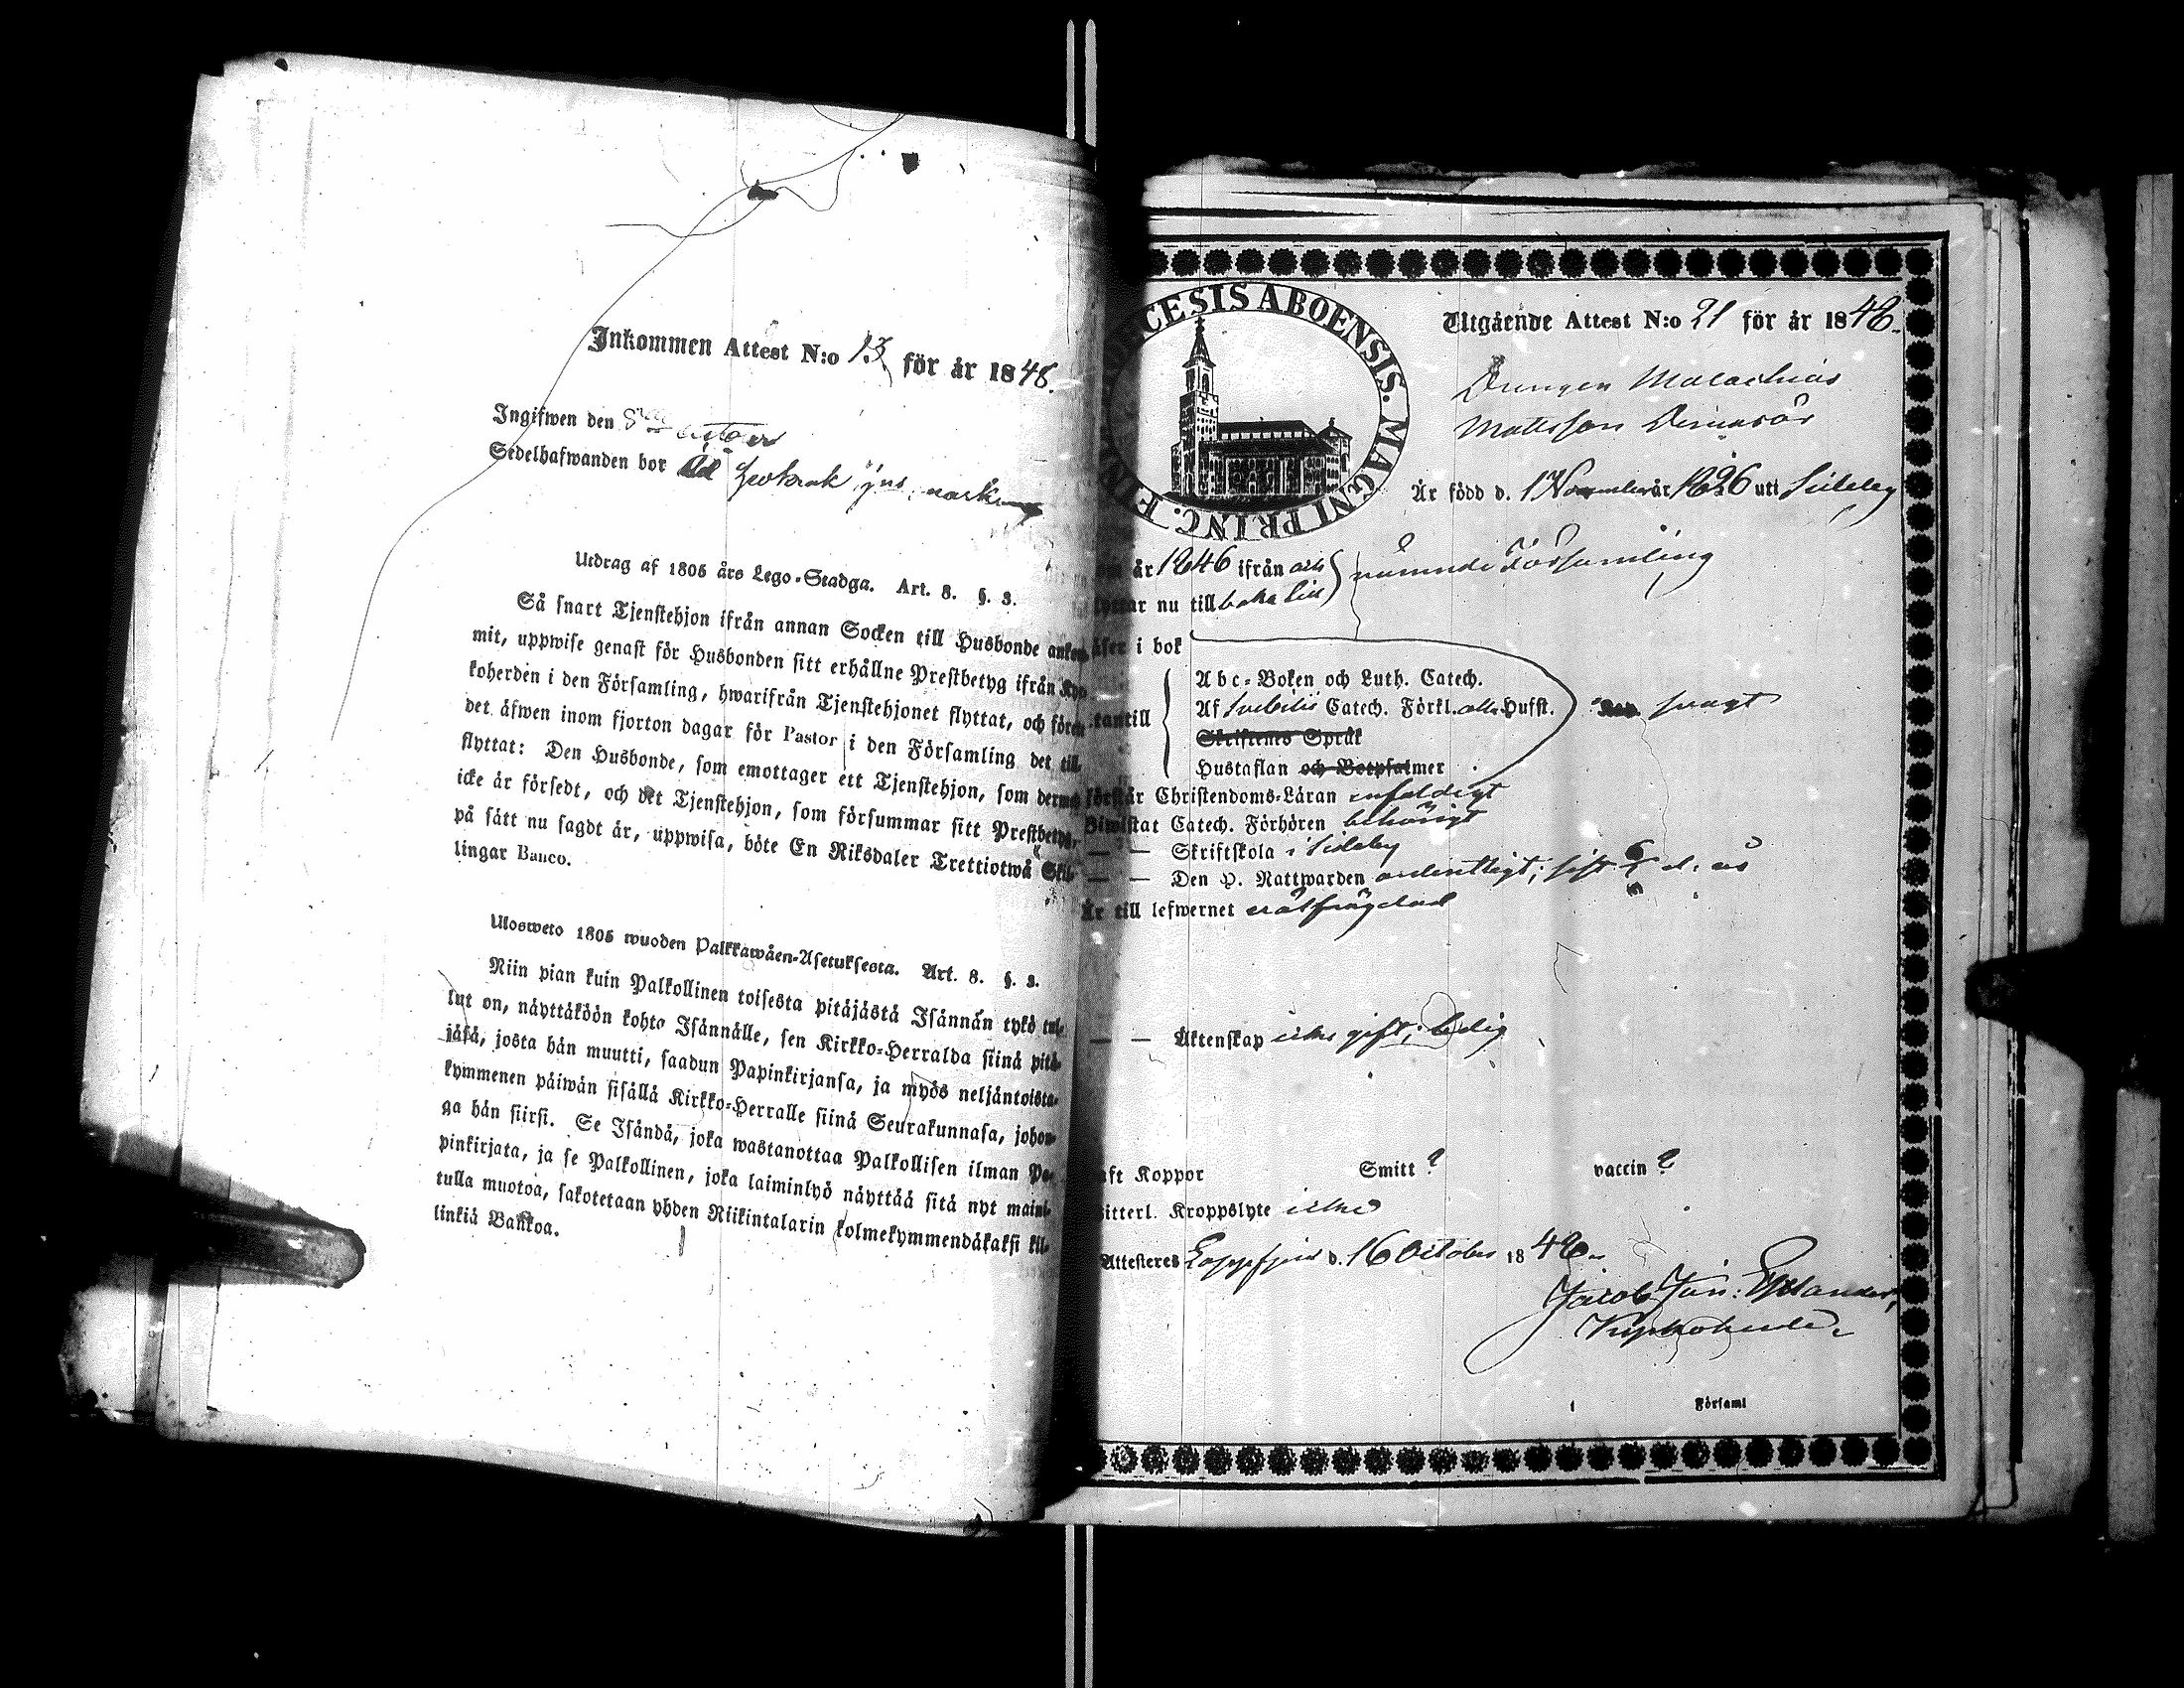 Inkommen Attest N:o 13 för år 1848.
Ingifwen den
Sedelhafwanden bor
Utdrag af 1805 års Lego-Stadga. Art. 8. §. 3.
Så snart Tjenstehjon ifrån annan Socken till Husbonde ankom-
mit, uppwise genast för Husbonden sitt erhållne Prestbetyg ifrån Kyr-
koherden i den Församling, hwarifrån Tjenstehjonet flyttat, och förete
det äfwen inom fjorton dagar för Pastor i den Församling det till-
flyttat: Den Husbonde, som emottager ett Tjenstehjon, som dermed
icke är försedt, och det Tjenstehjon, som försummar sitt Prestbetyg,
på sätt nu sagdt är, uppwisa, böte En Riksdaler Trettiotwå Skil-
lingar Banco.
Ulosweto 1805 wuoden Palkkawäen-Asetuksesta. Art. 8. §. 3.
Niin pian kuin Palkollinen toisesta pitäjästä Isännän tykö tul-
lut on, näyttäköön kohta Isännälle, sen Kirkko-Herralda siinä pitä-
jäsä, josta hän muutti, saadun Papinkirjansa, ja myös neljäntoista-
kymmenen päiwän sisällä Kirkko-Herralle siinä Seurakunnasa, johon-
ga hän siirsi. Se Isändä, joka wastanottaa Palkollisen ilman Pa-
pinkirjata, ja se Palkollinen, joka laiminlyö näyttää sitä nyt maini-
tulla muotoa, sakotetaan yhden Riikintalarin kolmekymmendäkaksi kil-
linkiä Bankoa.
CESIS ABOENSIS. MAGNI PRINC. F
Utgående Attest N:o 21 för år 1848.
Drengen Malachias
Mattsson
Är född d. 1 November år 1826 uti Sideby
år 1846 ifrån och
nämnde Församling
flyttar nu till baka till
läser i bok
Abc-Boken och Luth. Catech.
Af Svebilii Catech. Förkl. Hufst.
svagt
utantill
Skriftenes Språk
Hustaflan och Botpsalmer
förstår Christendoms-Läran enfaldigt
Biwistat Catech. Förhören behörigt
— — Skriftskola i Sideby
— — Den H. Nattwarden ordentligt; sist 6 d. ås
Är till lefwernet wälfrägdad
— — Äktenskap icke gift; ledig
haft Koppor Smitt ? vaccin ?
Witterl. Kroppslyte icke
Attesteres Lappfjerd d. 16 October 1848.
Jacob Joh:
Kyrkoherde
Församl